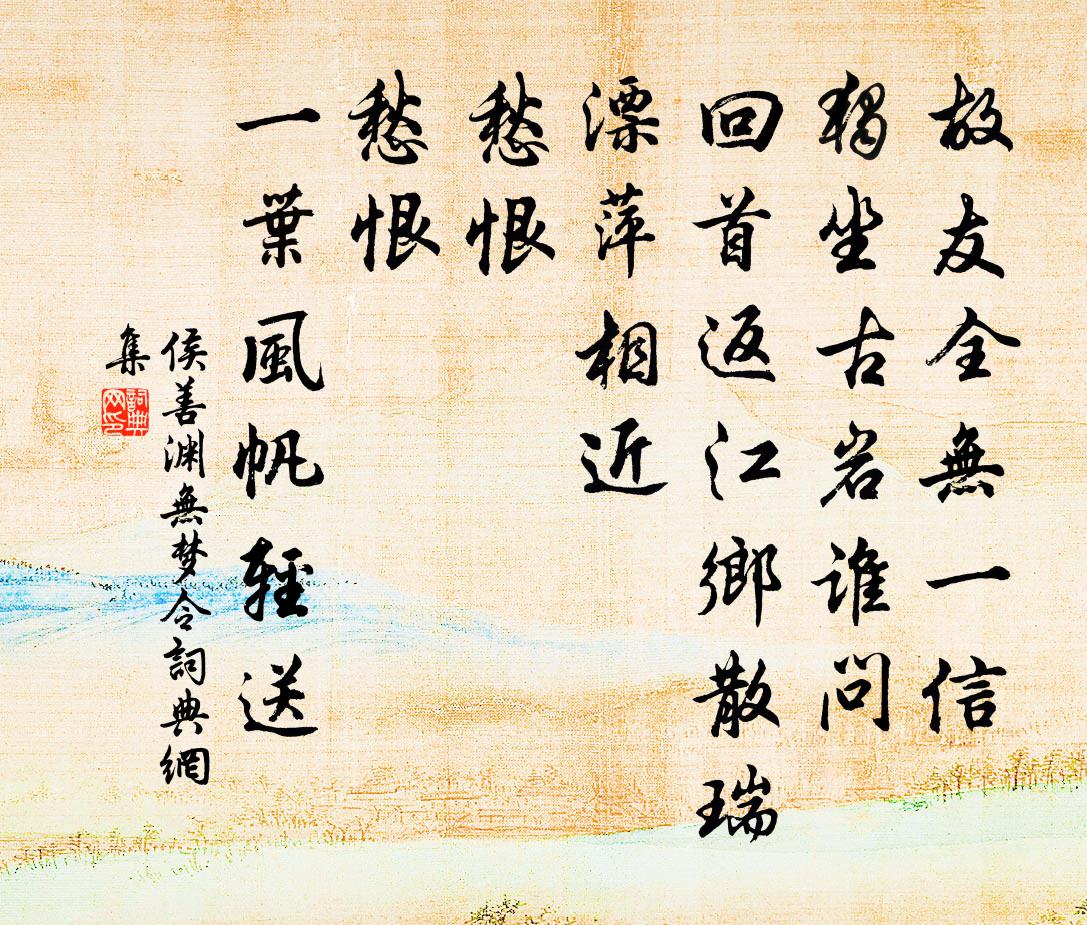 故友全無一信
獨坐古岩谁問
回首返江鄉散瑞
漂萍相近
愁恨
愁恨
一葉風帆輕送
侯善渊無梦令詞典網
集
詞典
网印